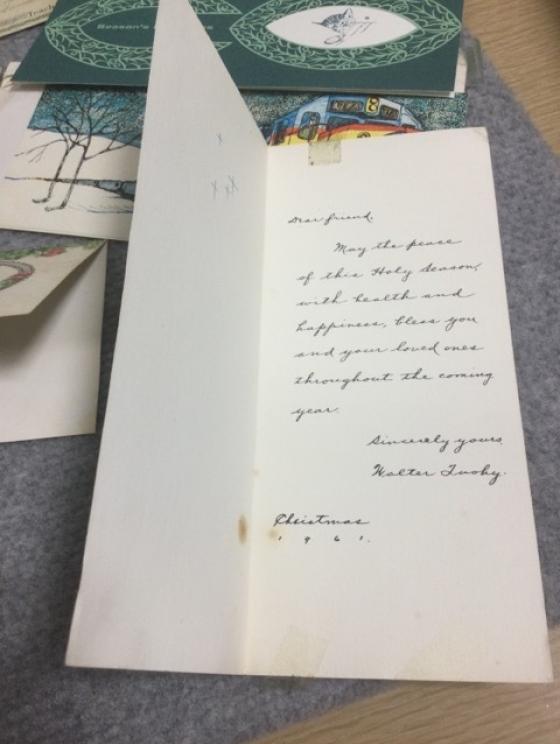 Season's
Dear friend.
May the peace
of this Holy Season,
with health and
happiness, bless you
and your loved ones
throughout the coming
year.
Sincerely yours,
Walter
Christmas
1961.